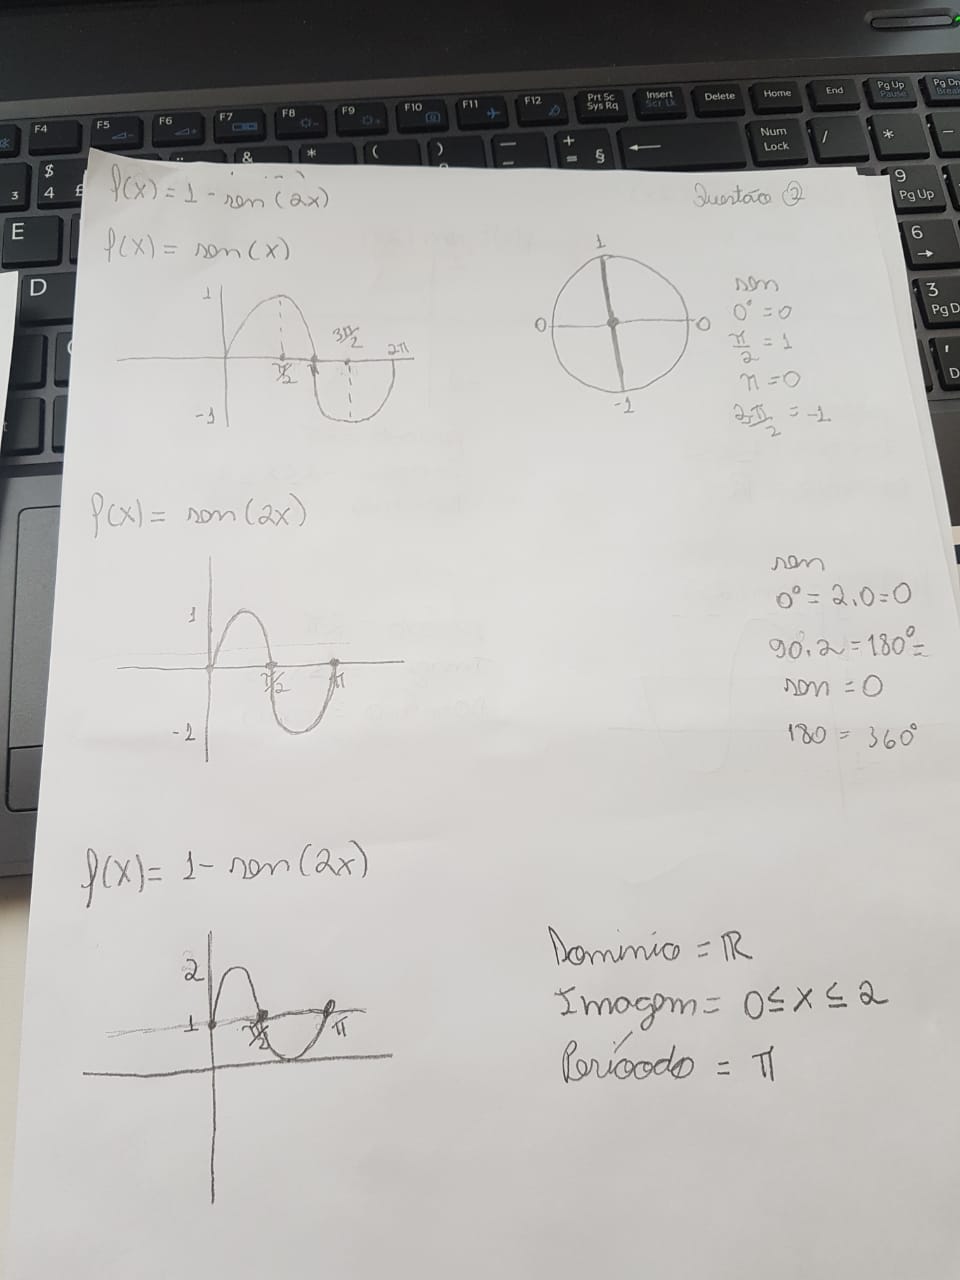 F4 F5 F6 F7 F8 F9 F10 F11 F12 Prt Sc Sys Rq Insert Scr Lk Delete Home End Pg Up Pause Pg Dn
3 $ 4 £ & * ( ) + = § Num Lock / * -
E D
9 Pg Up
6
3 Pg D
f(x) = 1 - sen(2x)
Questão 2
f(x) = sen(x)
1
π/2
π
3π/2
2π
-1
1
0
0
-1
sen
0° = 0
π/2 = 1
π = 0
3π/2 = -1
f(x) = sen(2x)
1
π/2
π
-2
sen
0° = 2.0 = 0
90.2 = 180° =
sen = 0
180 = 360°
f(x) = 1 - sen(2x)
2
1
π/2
π
Dominio = ℝ
Imagem = 0 ≤ x ≤ 2
Períoodo = π